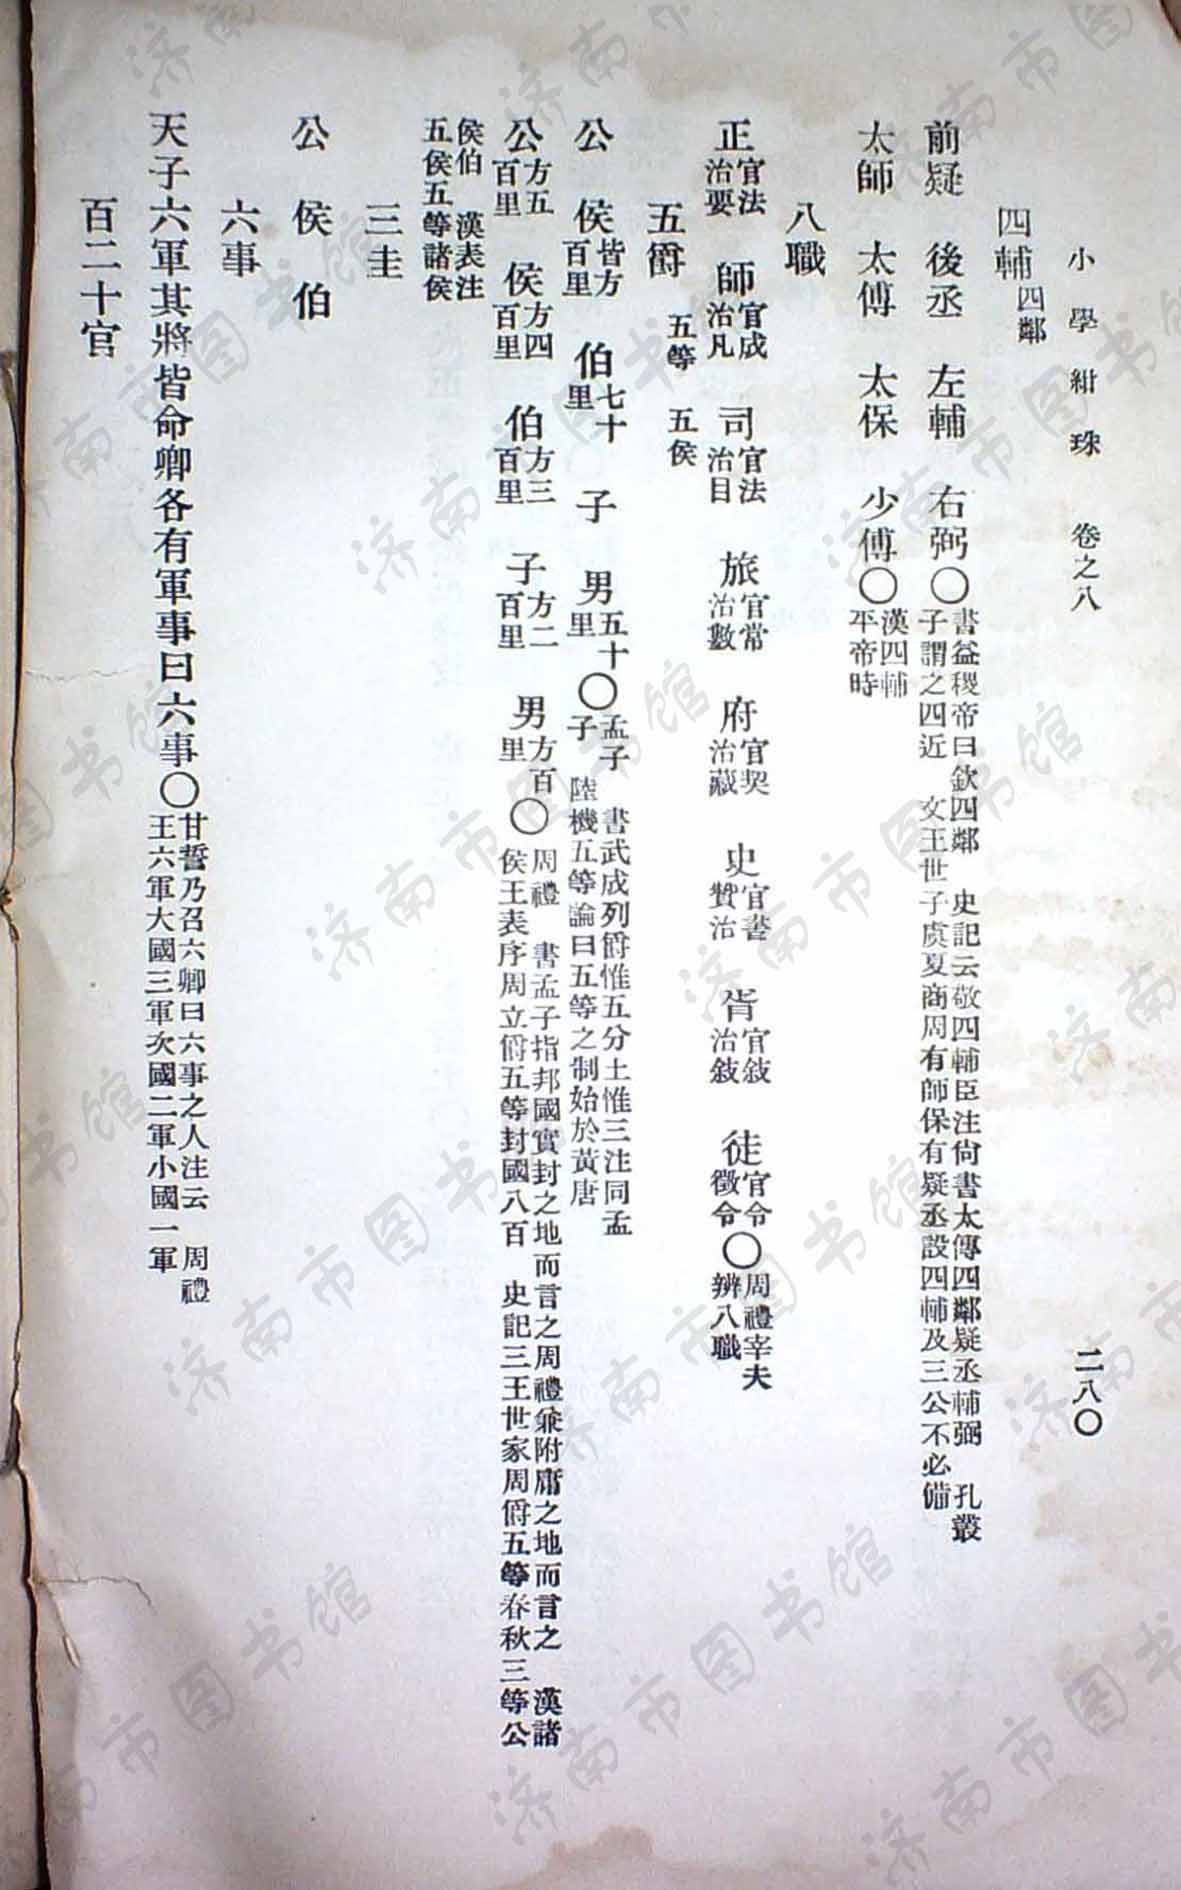 小學紺珠 卷之八 二八〇
四輔 四鄰
前疑 後丞 左輔 右弼〇書益稷帝曰欽四鄰 史記云敬四輔臣注尚書大傳四鄰疑丞輔弼 孔叢
子謂之四近 文王世子虞夏商周有師保有疑丞設四輔及三公不必備
太師 太傅 太保 少傅〇漢四輔
平帝時
八職
正官法治要 師官成治凡 司官法治目 旅官常治數 府官契治藏 史官書贊治 胥官敍治敍 徒官令徵令〇周禮宰夫
辨八職
五爵 五等 五侯
公 侯皆方百里 伯七十里 子 男五十里〇孟子 書武成列爵惟五分土惟三注同孟
子 陸機五等論曰五等之制始於黃唐
公方五百里 侯方四百里 伯方三百里 子方二百里 男方百里〇周禮 書孟子指邦國實封之地而言之周禮兼附庸之地而言之 漢諸
侯王表序周立爵五等封國八百 史記三王世家周爵五等春秋三等公
侯伯 漢表注
五侯五等諸侯
三圭
公 侯 伯
六事
天子六軍其將皆命卿各有軍事曰六事〇甘誓乃召六卿曰六事之人注云 周禮
王六軍大國三軍次國二軍小國一軍
百二十官
济南市图书馆